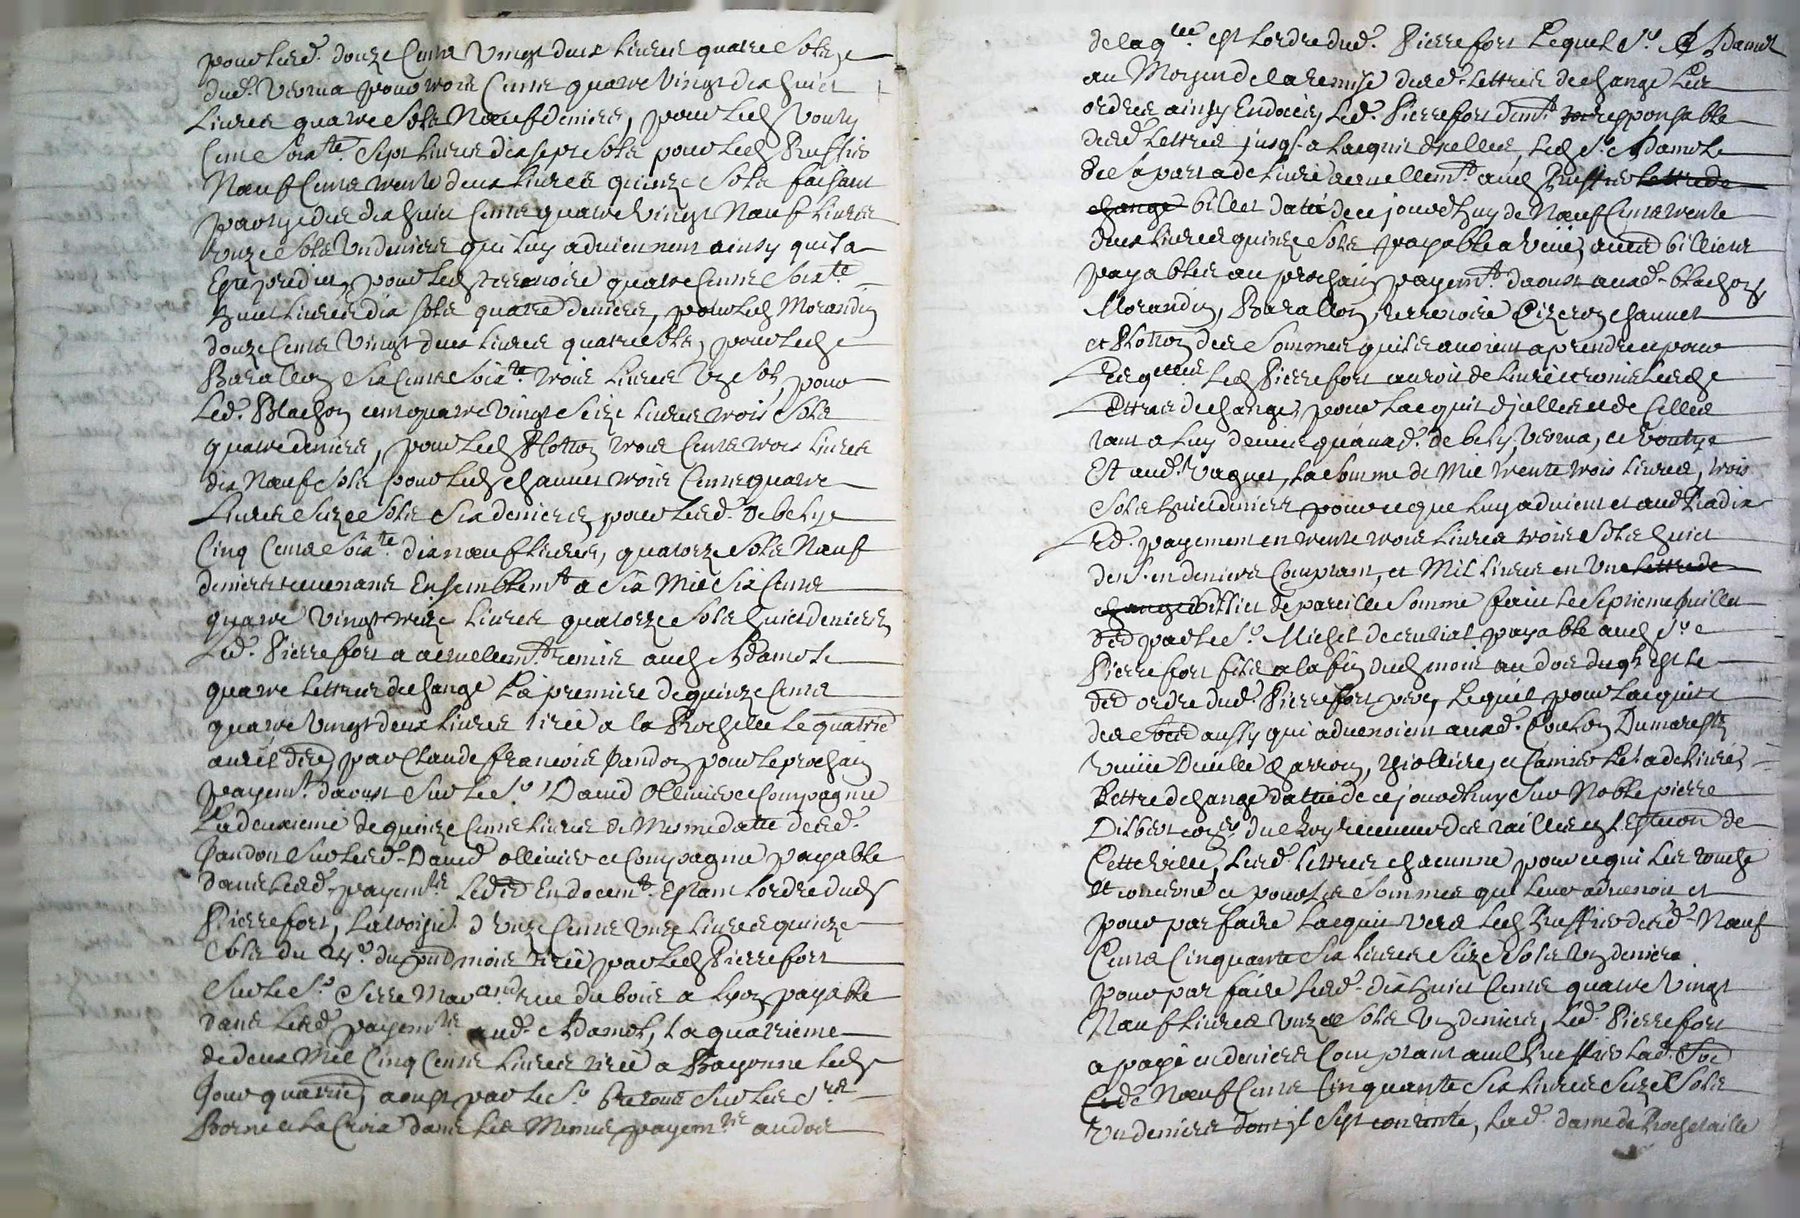 pour lesd. douze Cents Vingt deux livres quatre Sols
dud. Verna pour trois Cents quatre Vingt dix huict
livres quatre Sols Neuf deniers, pour led. Voulty
Cent Soixte. Sept livres dix sept Sols pour led. Ruffier
Neuf Cents trente deux livres quinze Sols faisant
partye des dix huict Cents quatre Vingt Neuf livres
Unze Sols Un denier qui luy adviennent ainsy quil a
Esté predit, pour led. Terrenoire quatre Cents Soixte.
huict livres dix sols quatre deniers, pour led. Morandin
douze Cents Vingt deux livres quatre sols, pour led.
Barallon Six Cents Soixte. trois livres Un Sol, pour
Led. Blachon cent quatre Vingt Seize livres trois Sols
quatre deniers, pour led. Plotton trois Cents trois livres
dix Neuf Sols pour led. chauvet trois Cents quatre
livres Seize Sols Six deniers, pour lesd. de bely
Cinq Cents Soixte. dix neuf livres, quatorze Sols Neuf
deniers revenant Ensemblemt. a Six Mil Six Cents
quatre Vingt treize livres quatorze Sols huict deniers,
Led. Pierrefort a actuellemt. remis aud. Adamoli
quatre lettres de change La premiere de quinze Cents
quatre Vingt deux livres tirée a la Rochelle le quatrie
avril der. par Claude francois Pandon pour le prochain
payemt. daoust Sur le Sr. David Ollivier et Compagnie
La deuxieme de quinze Cents livres de Mesme datte desd.
Pandon Sur lesd. David ollivier et Compagnie payable
dans lesd. payemts. Endocemt. Estant lordre dud.
Pierrefort, La troisie. d'Unze Cents Unze livres quinze
Sols du mois tirée par led. Pierrefort
Sur le Sr. Serre Marchand rue du bois a Lyon payable
dans lesd. payemts. aud. Adamoli, La quatrieme
de deux Mil Cinq Cents livres tirée a Bayonne led.
Jour quatrie. aoust par le Sr. Sur les Srs.
Borne et La Croix dans les Mesmes payemts. au dos
de laqlle. est lordre dud. Pierrefort Lequel Sr. Adamoli
au Moyen de la remise desd. lettres de change Les
ordres ainsy Endocés, Led. Pierrefort demt. responsable
desd. lettres jusq. a lacquit dycelles, Led. Sr. Adamoli
de Sa part a delivré actuellemt. aud. Ruffier lettre de
change billet datté de ce jourdhuy de Neuf Cents trente
deux livres quinze Sols payable a veüe, billiets
payables au prochain payemt. daoust auxd. blachon,
Morandin, Barallon, Terrenoire chauvet
et Plotton des Sommes quils avoient a prendre et pour
Lesqlles. Led. Pierrefort auroit delivré et remis lesd.
Lettres de change, pour Lacquit dycelles et de Celles
tant a luy deües quauxd. de bely, Verna, et Voulty
Et aud. Vaguet, La Somme de Mil trente trois livres, trois
Sols huict deniers pour ce que luy advient et aud.
Led. payement en trente trois livres trois Sols huict
den. en deniers Comptant, et Mil livres en Une lettre de
change billiet de pareille Somme fait le Septieme Juillet
der. par le Sr. Michel payable aud. Sr.
Pierrefort fils a la fin dud. mois au dos duql. est le
ordre dud. Pierrefort pere, Lequel pour Lacquit
des aussy qui advenoient auxd. Coulon, Dumarest,
Veuve Charron, Thiolliere, et Camier Les a delivrés
Lettre de change dattée de ce jourdhuy Sur Noble pierre
coner. du Roy receveur des tailles en lElection de
Cette Ville, Lesd. lettres chacunne pour ce qui les touche
et concerne et pour les Sommes qui leur advenoit et
pour parfaire Lacquit vers led. Ruffier desd. Neuf
Cents Cinquante Six livres Seize Sols Un denier
pour parfaire lesd. dix huict Cents quatre Vingt
Neuf livres Unze Sols Un denier, Led. Pierrefort
a payé en deniers Comptant aud. Ruffier
Neuf Cents Cinquante Six livres Seize Sols
Un deniers dont il Sest contenté, Lad. dame de Rochetaille